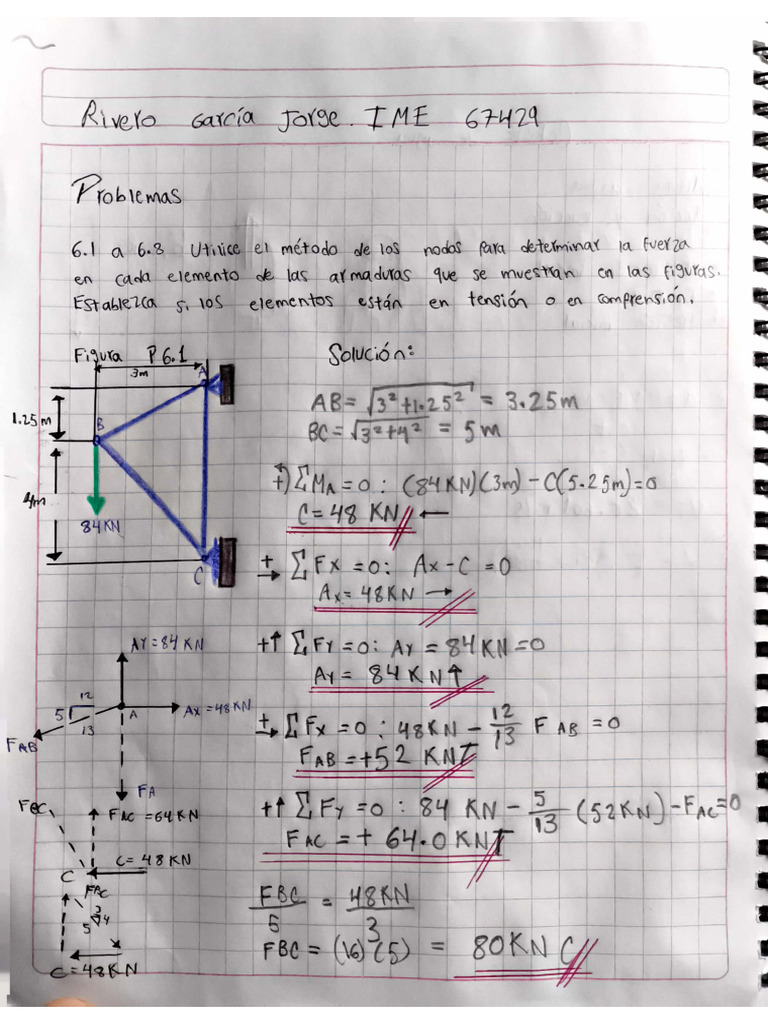 Rivero García Jorge. IME 67429
Problemas
6.1 a 6.8 Utilice el método de los nodos para determinar la fuerza
en cada elemento de las armaduras que se muestran en las figuras.
Establezca si los elementos están en tensión o en comprensión.
Figura P6.1
3m
A
1.25m
B
4m
84KN
C
Solución:
AB = √3²+1.25² = 3.25m
BC = √3²+4² = 5m
+) ΣMA = 0 : (84KN)(3m) - C(5.25m) = 0
C = 48 KN ←
+→ ΣFx = 0: Ax - C = 0
Ax = 48KN →
+↑ ΣFy = 0: Ay = 84KN = 0
Ay = 84KN↑
AY = 84 KN
12
5
13
A
Ax = 48KN
FAB
FA
+→ ΣFx = 0 : 48KN - 12/13 FAB = 0
FAB = +52 KN T
+↑ ΣFy = 0 : 84 KN - 5/13 (52KN) - FAC = 0
FAC = + 64.0KN T
FBC
FAC = 64KN
C = 48KN
C
FAC
3
4
5
C = 48KN
FBC/5 = 48KN/3
FBC = (16)(5) = 80KN C